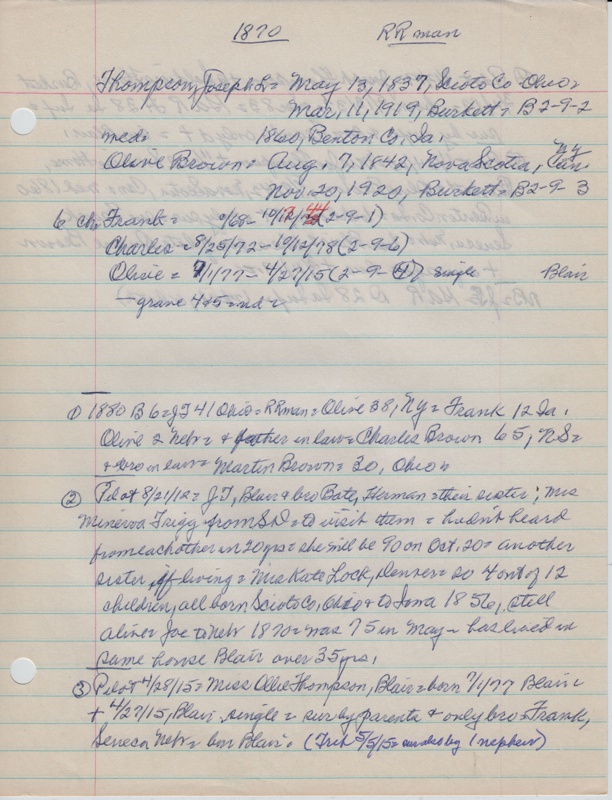 1870 RR man
Thompson, Joseph L = May 13, 1837, Scioto Co Ohio =
Mar, 11, 1919, Burkett = B2-9-2
med = 1860, Benton Co, Ia.
Olive Brown = Aug. 7, 1842, Nova Scotia, Can. NY
Nov. 20, 1920, Burkett = B2-9-3
6 ch. Frank = 9/68- (2-9-1)
Charles = 8/25/72 - 10/12/78 (2-9-6)
Olivie = 7/1/77 - 4/27/15 (2-9- ) single Blair
- grave 4 & 5 = nd =
① 1880 B 6 = J T 41 Ohio = RR man = Olive 38, NY = Frank 12 Ia.
Olive 2 Nebr = & father in law = Charles Brown 65, NS =
+ bro in law = Martin Brown = 30, Ohio =
② Pilot 8/21/12 = J.T, Blair & bro Bate, Herman = their sister, Mrs
Minerva Trigg from SD = to visit them = hadn't heard
from each other in 20 yrs = she will be 90 on Oct. 20 = another
sister, if living = Mrs Kate Lock, Denver = so 4 out of 12
children, all born Scioto Co, Ohio & to Iowa 1856, still
alive = Joe to Nebr 1870 = was 75 in May = has lived in
same house Blair over 35 yrs.
③ Pilot 4/28/15 = Miss Ollie Thompson, Blair = born 7/1/77 Blair =
+ 4/27/15, Blair single = sur by parents & only bro = Frank,
Seneca Nebr = bur Blair. (Trib 5/5/15 = also by 1 nephew)